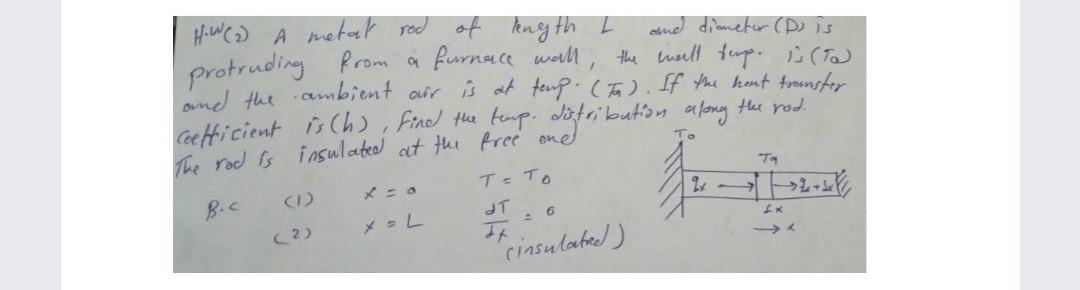 H.W(2) A metal rod of length L and diameter (D) is
protruding from a furnace wall, the wall temp. is (To)
and the ambient air is at temp. (Ta). If the heat transfer
coefficient is (h), find the temp. distribution along the rod.
The rod is insulated at the free end
B.C (1) x = 0 T = To
(2) x = L dT/dx = 0
(insulated)
To
Ta
qx qx+δx
δx
x